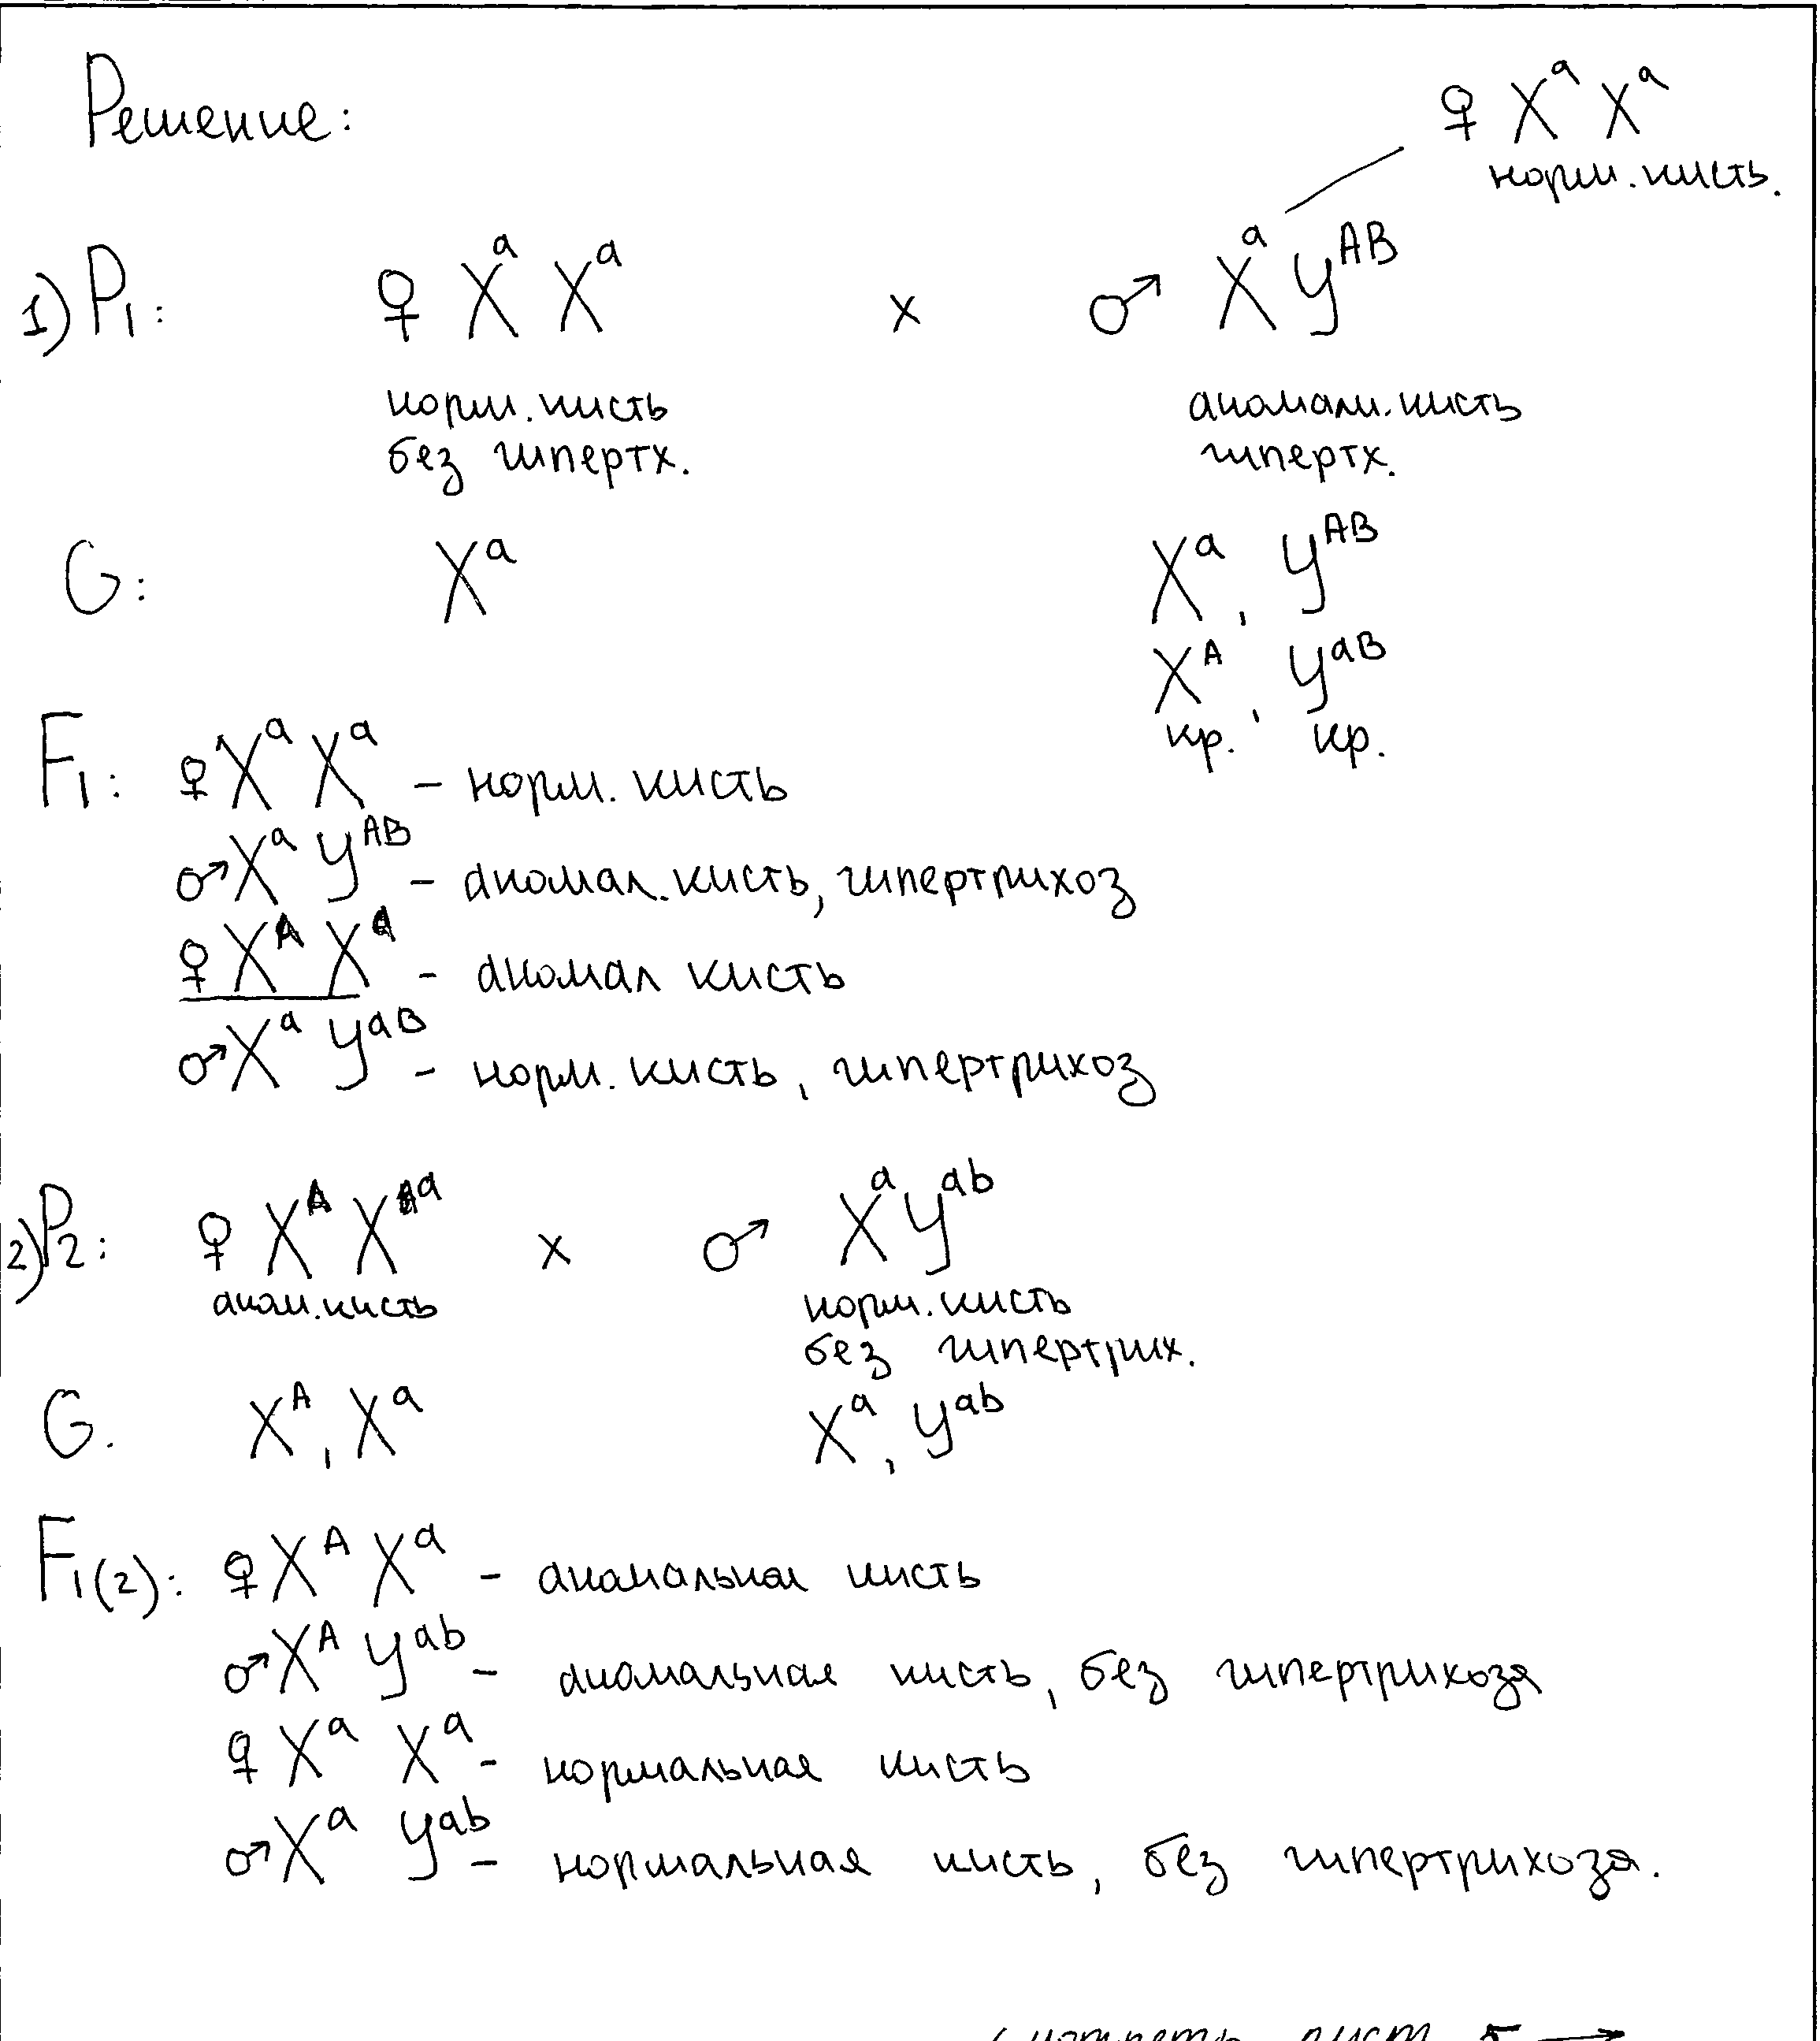 Решение:
♀ Xᵃ Xᵃ
норм. кисть.
1) P₁: ♀ Xᵃ Xᵃ x ♂ Xᵃ Yᴬᴮ
норм. кисть аномали. кисть
без гипертх. гипертх.
G: Xᵃ Xᵃ, Yᴬᴮ
Xᴬ, Yᵃᴮ
кр. кр.
F₁: ♀ Xᵃ Xᵃ – норм. кисть
♂ Xᵃ Yᴬᴮ – аномал. кисть, гипертрихоз
♀ Xᴬ Xᵃ – аномал кисть
♂ Xᵃ Yᵃᴮ – норм. кисть, гипертрихоз
2) P₂: ♀ Xᴬ Xᵃ x ♂ Xᵃ Yᵃᵇ
аном. кисть норм. кисть
без гипертрих.
G. Xᴬ, Xᵃ Xᵃ, Yᵃᵇ
F₁₍₂₎: ♀ Xᴬ Xᵃ – аномальная кисть
♂ Xᴬ Yᵃᵇ – аномальная кисть, без гипертрихоза
♀ Xᵃ Xᵃ – нормальная кисть
♂ Xᵃ Yᵃᵇ – нормальная кисть, без гипертрихоза.
смотреть лист 5 →